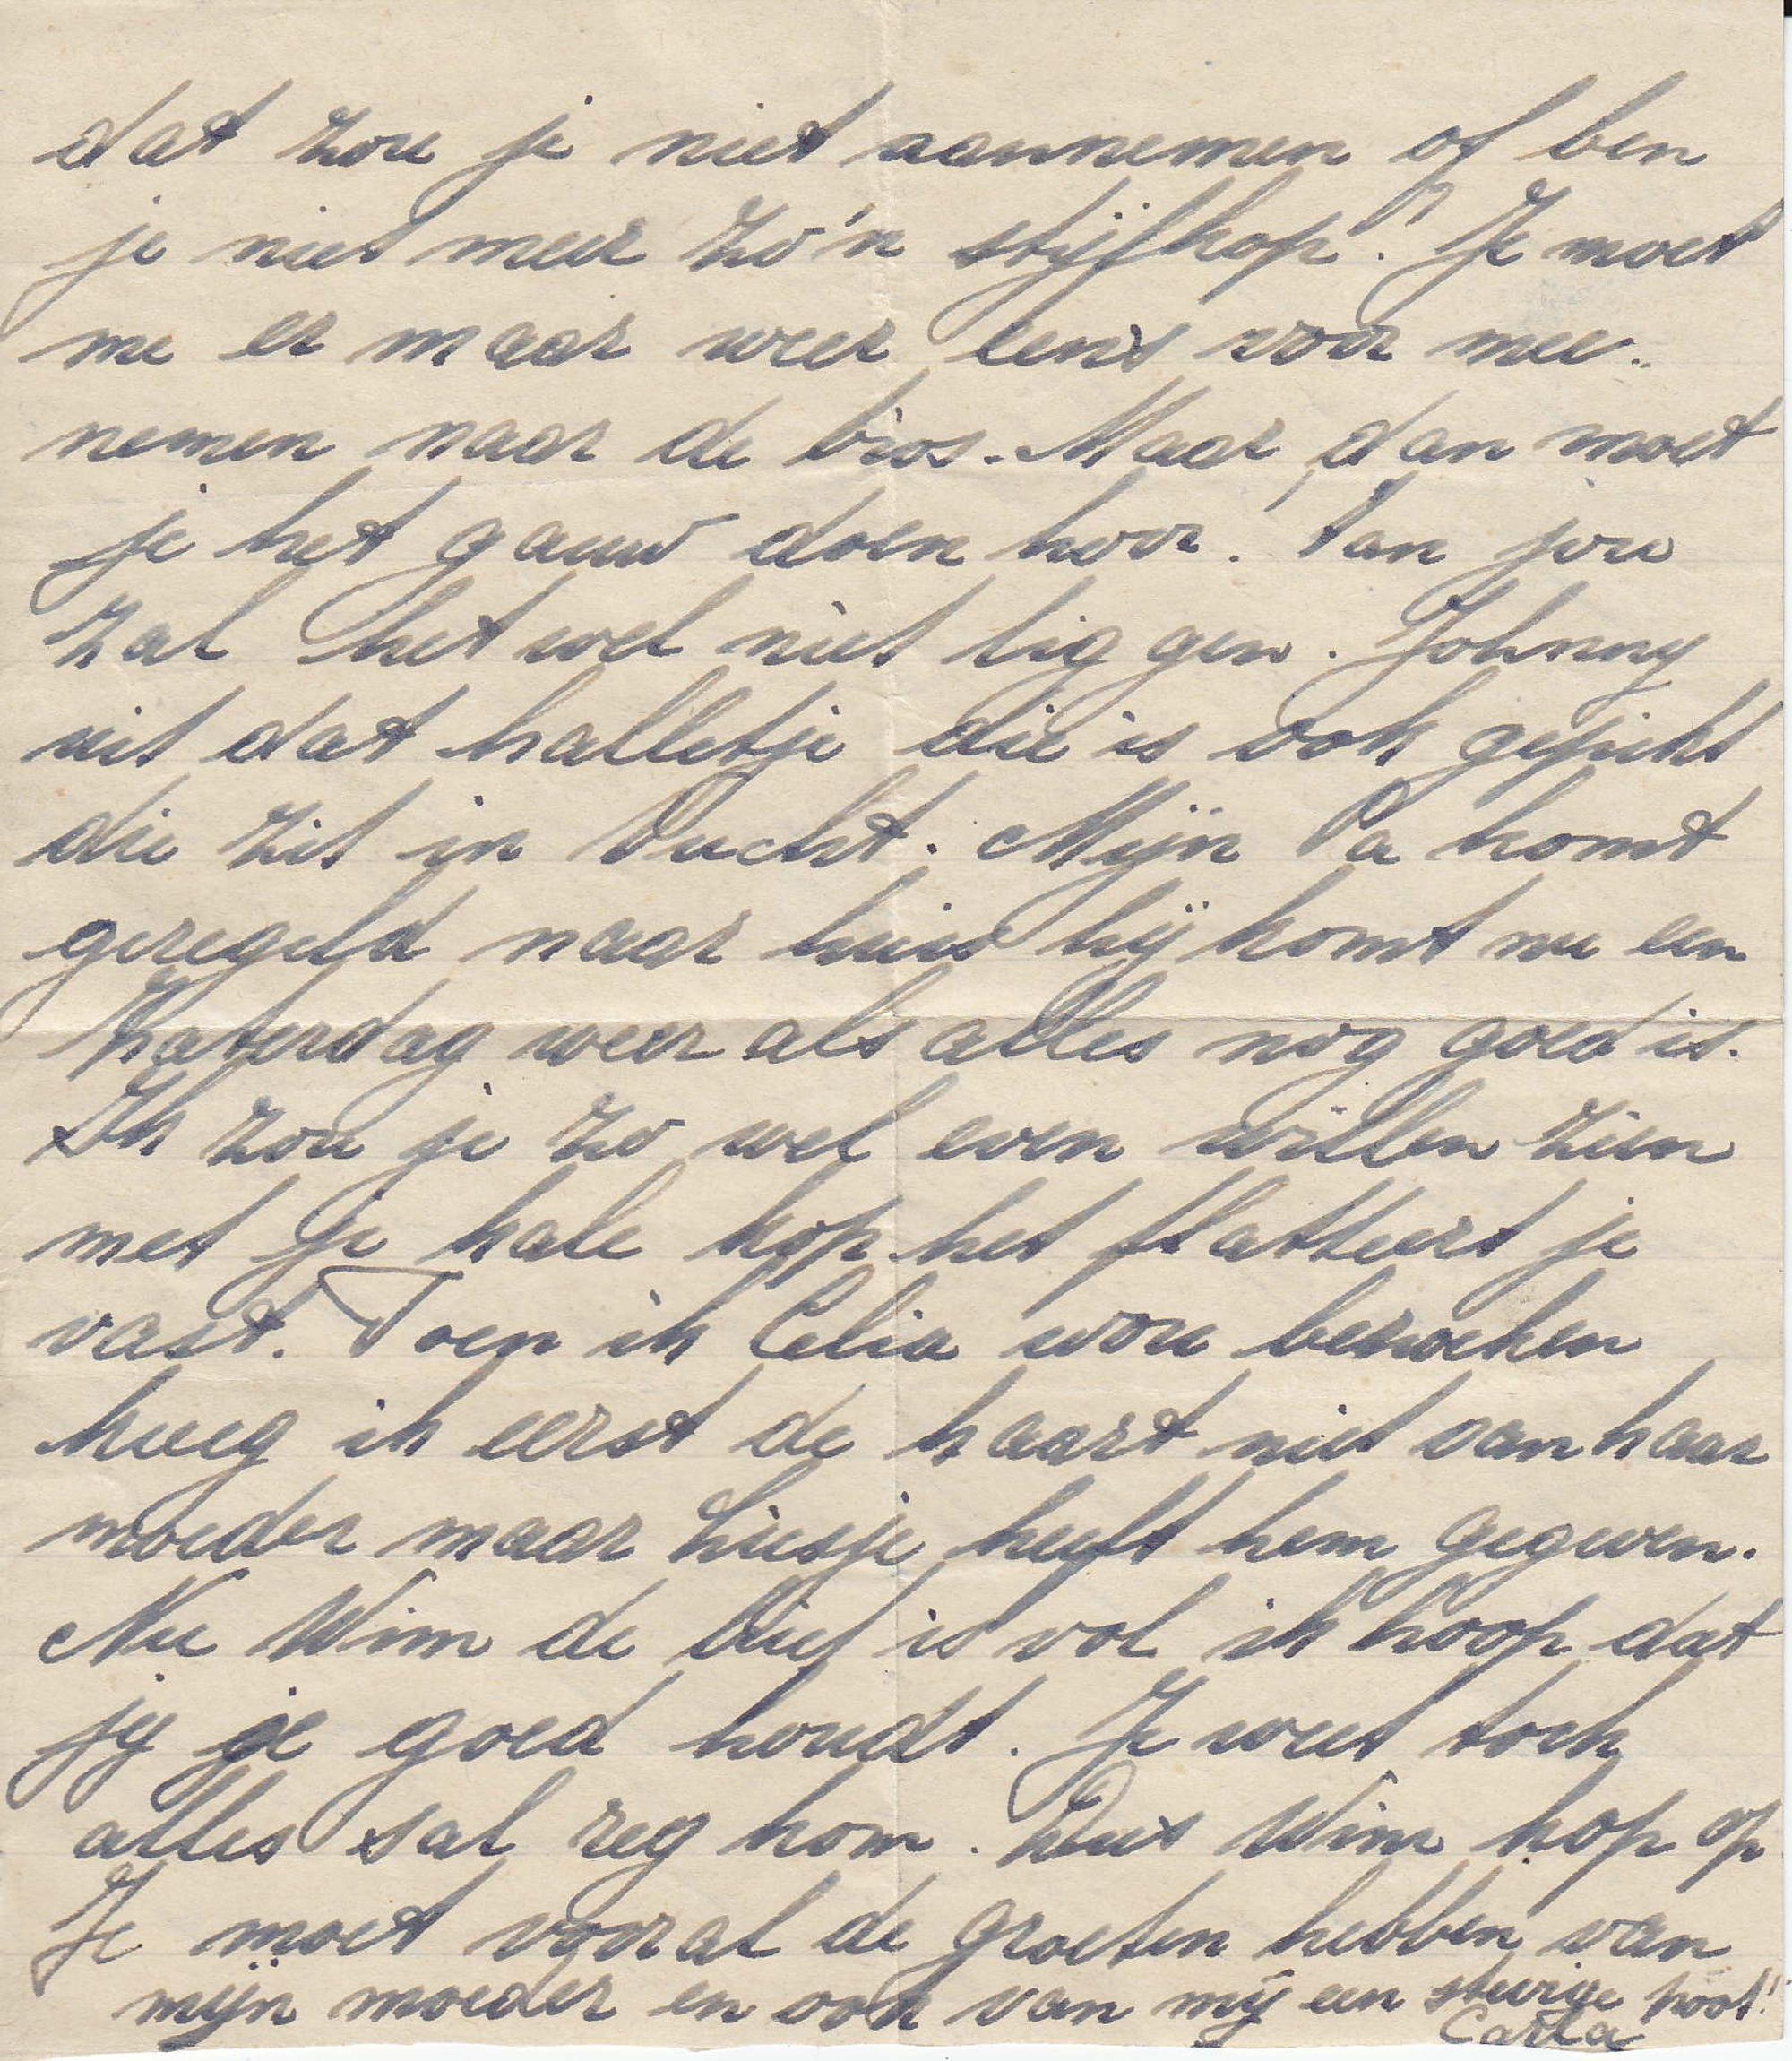 dat zou je niet aannemen of ben
je niet meer zo'n stijfkop? Je moet
me er maar weer eens voor mee-
nemen naar de bios. Maar dan moet
je het gauw doen hoor! Aan jou
zal het wel niet liggen. Johnny
uit dat halletje die is ook gepikt
die zit in Vucht. Mijn Pa komt
geregeld naar huis hij komt nu een
Zaterdag weer als alles nog goed is.
Ik zou je zo wel even willen zien
met je kale kop het flatteert je
vast. Toen ik Celia wou bezoeken
kreeg ik eerst de kaart niet van haar
moeder maar Liesje heeft hem gegeven.
Nu Wim de brief is vol ik hoop dat
jij je goed houdt. Je weet toch
alles sal reg kom. Dus Wim kop op
Je moet vooral de groeten hebben van
mijn moeder en ook van mij een stevige poot!
Carla